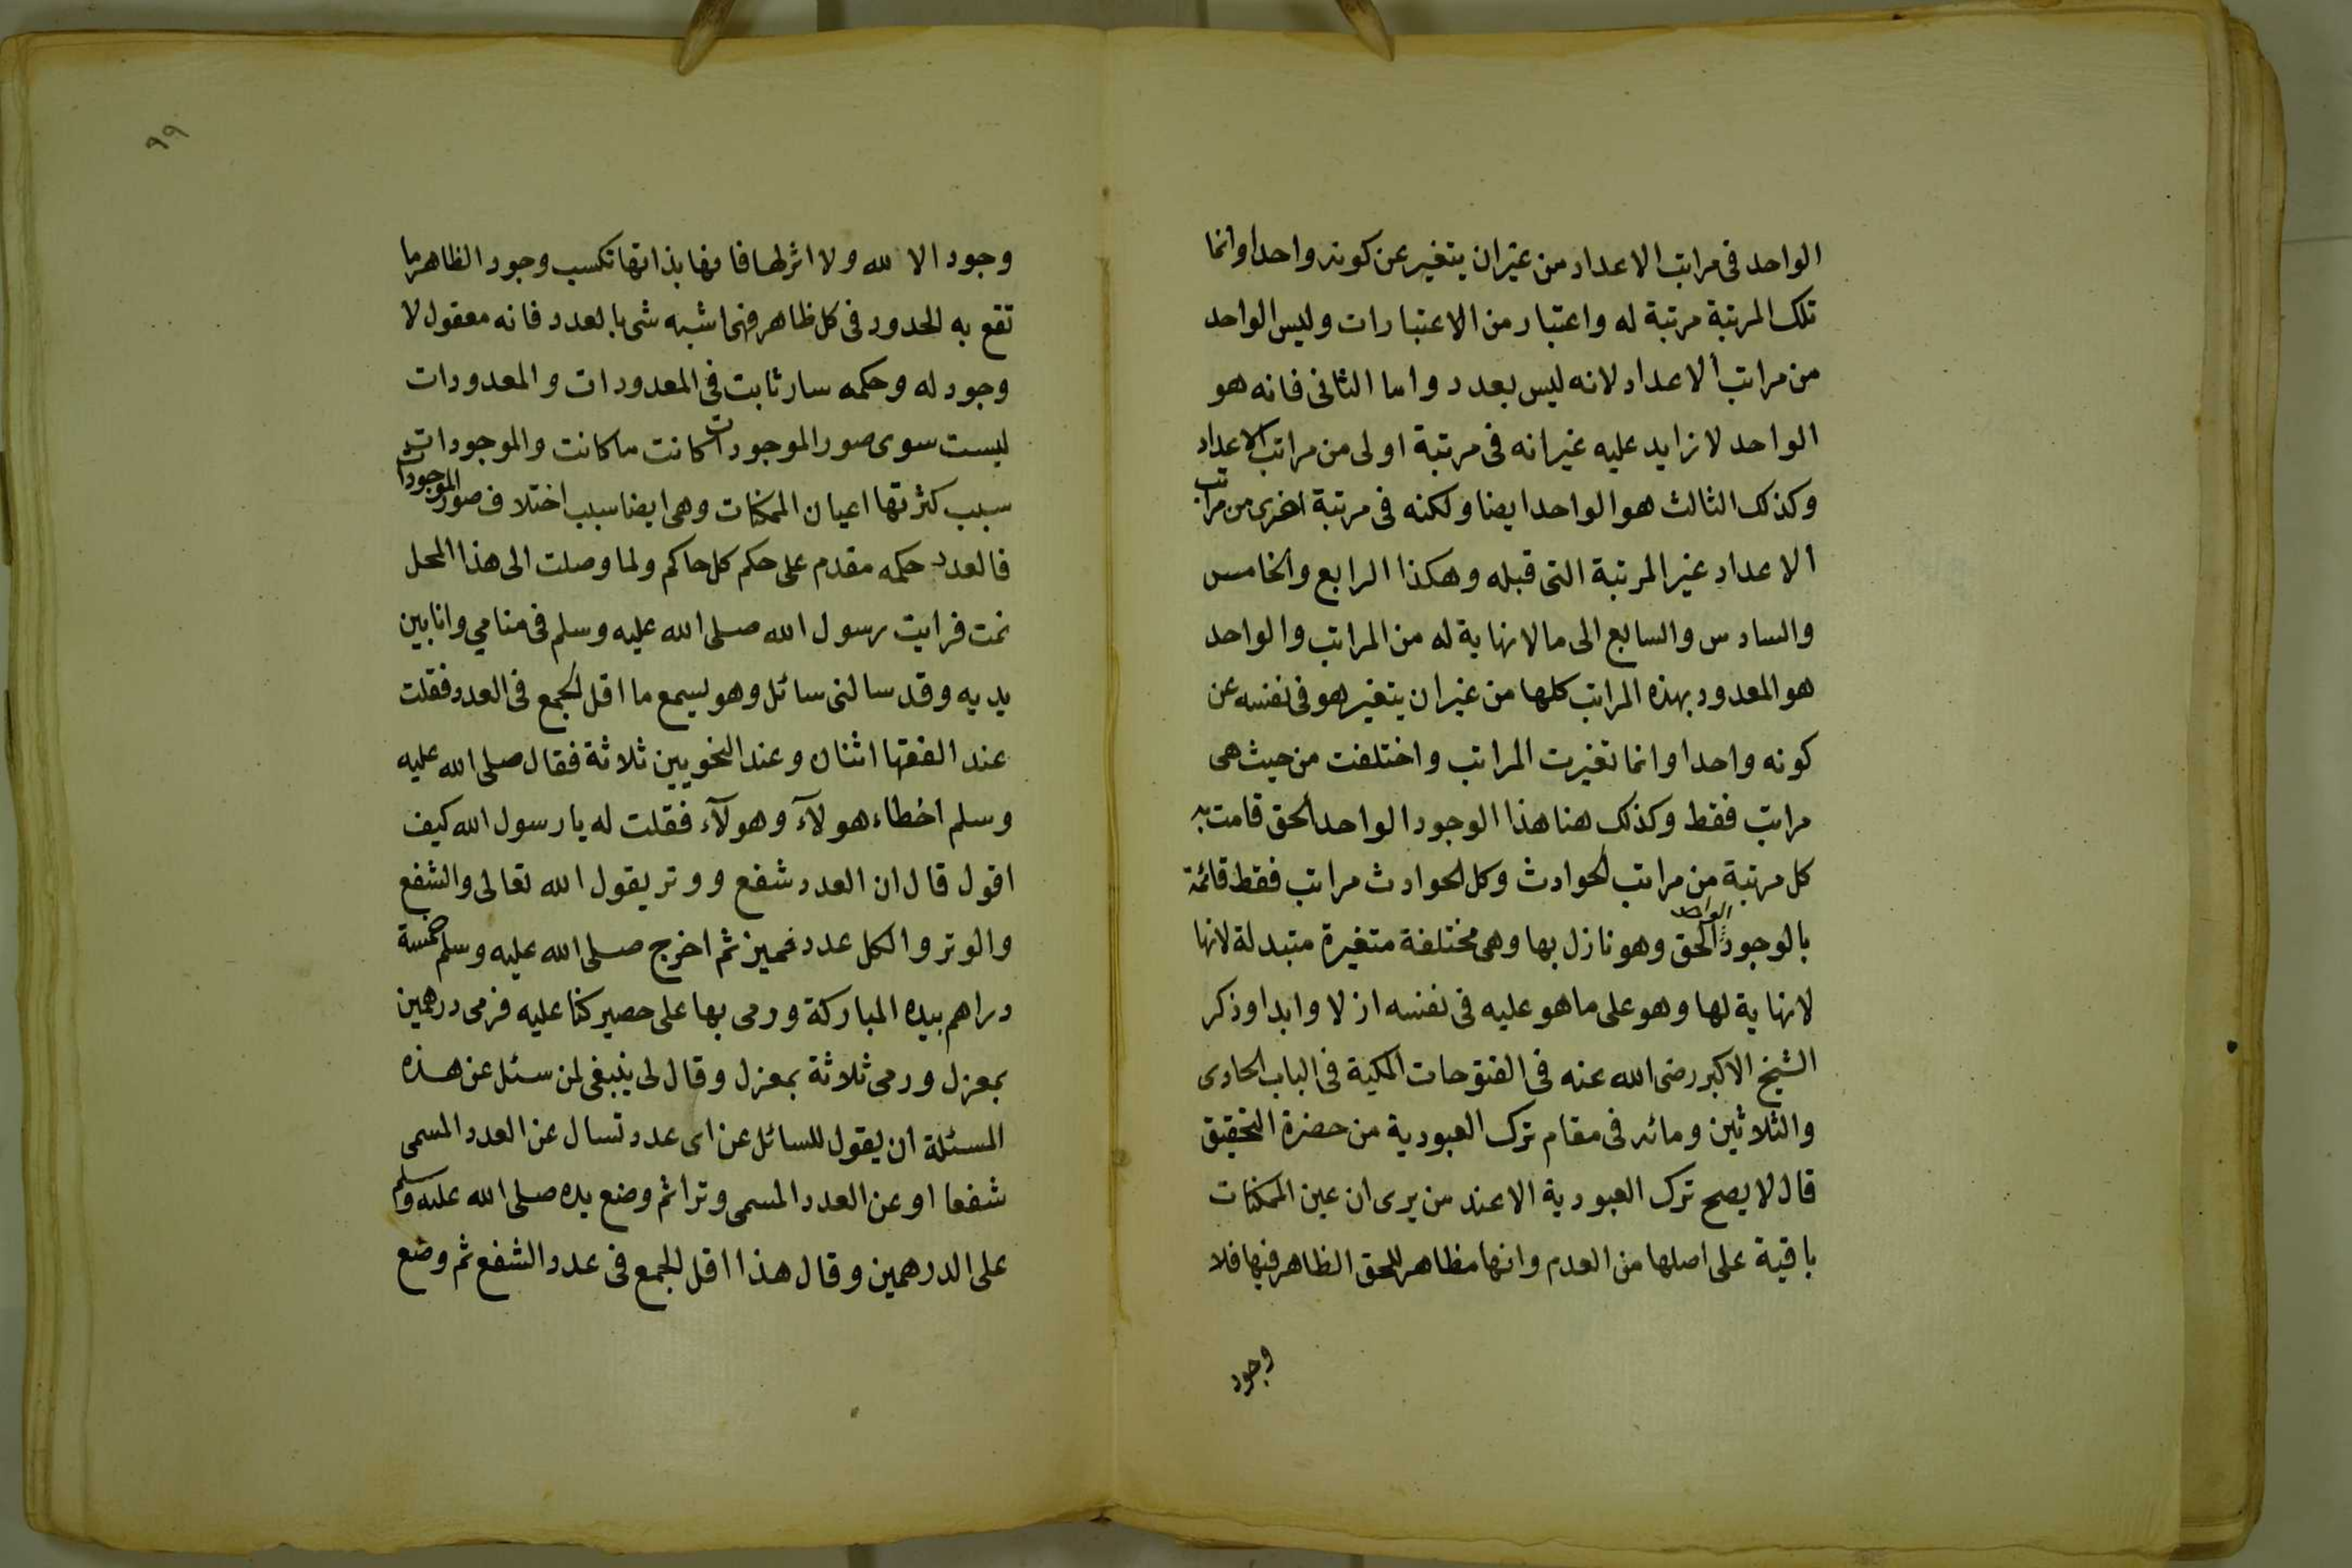 الواحد فى مراتب الاعداد من غير ان يتغير عن كونه واحدا وانما
تلك المرتبة مرتبة له واعتبار من الاعتبارات وليس الواحد
من مراتب الاعداد لانه ليس بعدد واما الثانى فانه هو
الواحد لا زايد عليه غير انه فى مرتبة اولى من مراتب الاعداد
وكذلك الثالث هو الواحد ايضا ولكنه فى مرتبة اخرى من مراتب
الاعداد غير المرتبة التى قبله وهكذا الرابع والخامس
والسادس والسابع الى ما لا نهاية له من المراتب والواحد
هو المعدود بهذه المراتب كلها من غير ان يتغير هو فى نفسه عن
كونه واحدا وانما تغيرت المراتب واختلفت من حيث هى
مراتب فقط وكذلك هنا هذا الوجود الواحد الحق قامت به
كل مرتبة من مراتب الحوادث وكل الحوادث مراتب فقط قائمة
بالوجود الواحد الحق وهو نازل بها وهى مختلفة متغيرة متبدلة لانها
لا نهاية لها وهو على ما هو عليه فى نفسه ازلا وابدا وذكر
الشيخ الاكبر رضى الله عنه فى الفتوحات المكية فى الباب الحادى
والثلاثين ومائه فى مقام ترك العبودية من حضرة التحقيق
قال لا يصح ترك العبودية الا عند من يرى ان عين الممكنات
باقية على اصلها من العدم وانها مظاهر للحق الظاهر فيها فلا
وجود
٩٩
وجود الا لله ولا اثر لها فانها بذاتها تكسب وجود الظاهر ما
تقع به الحدود فى كل ظاهر فهى اشبه شى بالعدد فانه معقول لا
وجود له وحكمه سار ثابت فى المعدودات والمعدودات
ليست سوى صور الموجودات كانت ما كانت والموجودات
سبب كثرتها اعيان الممكنات وهى ايضا سبب اختلاف صور الموجودات
فالعدد حكمه مقدم على حكم كل حاكم ولما وصلت الى هذا المحل
نمت فرايت رسول الله صلى الله عليه وسلم فى منامي وانا بين
يديه وقد سالنى سائل وهو يسمع ما اقل الجمع فى العدد فقلت
عند الفقها اثنان وعند النحويين ثلاثة فقال صلى الله عليه
وسلم اخطاء هولآء وهولآء فقلت له يا رسول الله كيف
اقول قال ان العدد شفع ووتر يقول الله تعالى والشفع
والوتر والكل عدد فميز ثم اخرج صلى الله عليه وسلم خمسة
دراهم بيده المباركة ورمى بها على حصير كنا عليه فرمى درهمين
بمعزل ورمى ثلاثة بمعزل وقال لى ينبغى لمن سئل عن هذه
المسئلة ان يقول للسائل عن اى عدد تسال عن العدد المسمى
شفعا او عن العدد المسمى وترا ثم وضع يده صلى الله عليه وسلم
على الدرهمين وقال هذا اقل الجمع فى عدد الشفع ثم وضع